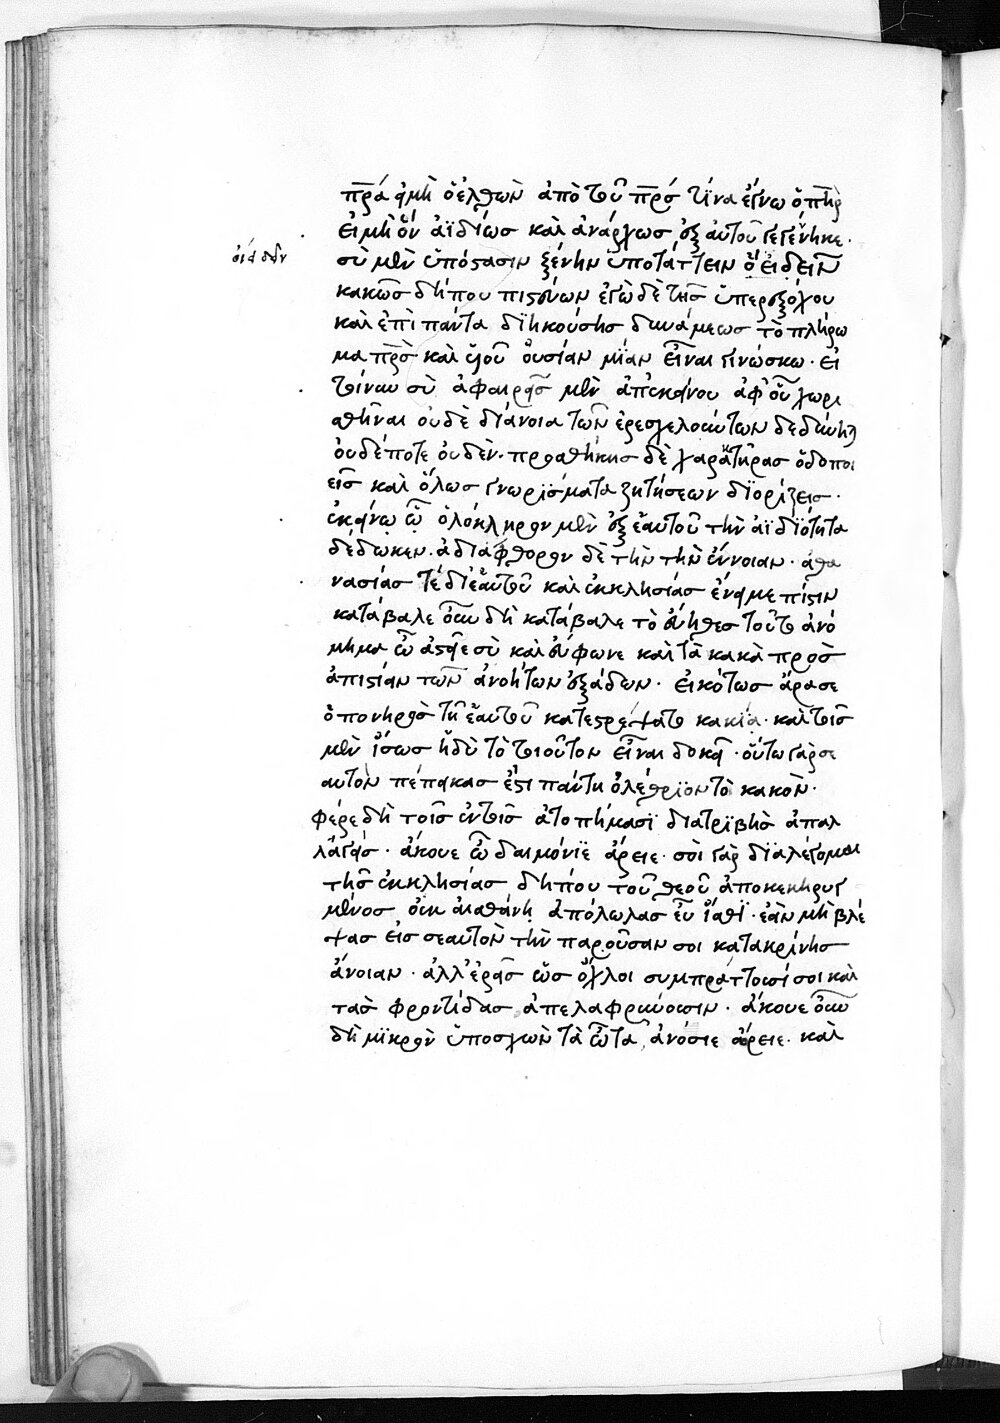 π̅ρ̅α εἰ μὴ ὁ ἐλθὼν ἀπὸ τοῦ π̅ρ̅σ τίνα ἔγνω ὁ π̅η̅ρ
εἰ μὴ ὃν ἀϊδίωσ καὶ ἀνάρχωσ ἐξ αὐτοῦ γεγέννηκε·
σὺ μὲν ὑπόστασιν ξένην ὑποτάττειν οἴει δεῖν
οἴει δεῖν
κακῶσ δήπου πιστεύων ἐγὼ δὲ τῆσ ὑπερεξόχου
καὶ ἐπὶ πάντα διηκούσησ δυνάμεωσ τὸ πλήρω
μα π̅ρ̅σ καὶ υἱοῦ οὐσίαν μίαν εἶναι γινώσκω· εἰ
τοίνυν σὺ ἀφαιρεῖσ μὲν ἀπ' ἐκείνου ἀφ' οὗ χωρι
σθῆναι οὐδὲ διάνοια τῶν ἐρεσχελούντων δεδύνητ
οὐδέποτε οὐδέν· προσθήκησ δὲ χαρακτῆρασ ὁδοποι
εῖσ καὶ ὅλωσ γνωρίσματα ζητήσεων διορίζεισ·
ἐκείνῳ ᾧ ὁλόκληρον μὲν ἐξ ἑαυτοῦ τὴν ἀϊδιότητα
δέδωκεν· ἀδιάφθορον δὲ τὴν τὴν ἔννοιαν· ἀθα
νασίασ τε δι' ἑαυτοῦ καὶ ἐκκλησίασ ἔνειμε πίστιν
κατάβαλε οὖν δὴ κατάβαλε τὸ εὔηθεσ τοῦτο ἀνό
μημα ὦ ἀστεῖε σὺ καὶ εὔφωνε καὶ τὰ κακὰ πρὸσ
ἀπιστίαν τῶν ἀνοήτων ἐξᾴδων· εἰκότωσ ἄρα σε
ὁ πονηρὸσ τῇ ἑαυτοῦ κατεστρέψατο κακίᾳ· καὶ τοῖσ
μὲν ἴσωσ ἡδὺ τὸ τοιοῦτον εἶναι δοκεῖ· οὕτω γάρ σε
αὐτὸν πέπεικασ ἔστι πάντη ὀλέθριον τὸ κακόν·
φέρε δὴ τοῖσ ἐν τοῖσ ἀτοπήμασι διατριβῆσ ἀπαλ
λαγείσ· ἄκουε ὦ δαιμόνιε ἄρειε· σοὶ γὰρ διαλέγομαι
τῆσ ἐκκλησίασ δήπου τοῦ θεοῦ ἀποκεκηρυγ
μένοσ οὐκ αἰσθάνῃ ἀπόλωλασ εὖ ἴσθι· ἐὰν μὴ βλέ
ψασ εἰσ σεαυτὸν τὴν παροῦσάν σοι κατακρίνησ
ἄνοιαν· ἀλλ' ἐρεῖσ ὡσ ὄχλοι συμπράττουσί σοι καὶ
τὰσ φροντίδασ ἀπελαφρύνουσιν· ἄκουε οὖν
δὴ μικρὸν ὑποσχὼν τὰ ὦτα, ἀνόσιε ἄρειε· καὶ